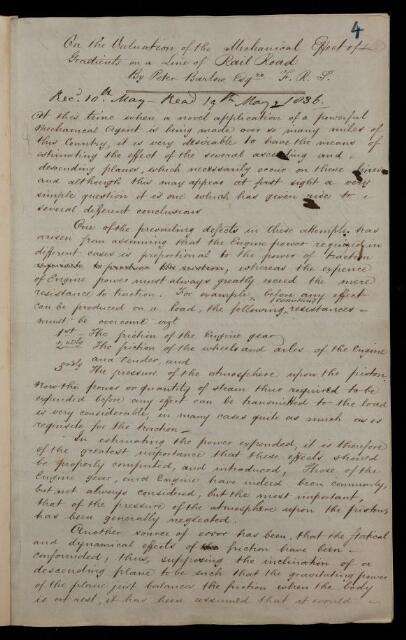 4
On the Valuation of the Mechanical Effect of
Gradients on a Line of Rail Road
By Peter Barlow Esqre. F. R. S.
Recd. 10th May – Read 19th May 1836.
At this time when a novel application of a powerful
Mechanical Agent is being made over so many miles of
this Country, it is very desirable to have the means of
estimating the effect of the several ascending and
descending planes, which necessarily occur on those lines
and although this may appear at first sight a very
simple question it is one which has given rise to
several different conclusions
One of the prevailing defects in these attempts has
arisen from assuming that the Engine power required in
different cases is proportional to the power of traction
requisite to produce the motion, whereas the expence
of Engine power must always greatly exceed the mere
resistance to traction. For example, before any effect
can be produced on a load, the following constant resistances –
must be overcome viz
1st The friction of the Engine gear
2ndly The friction of the wheels and axles of the Engine
and Tender, and
3rdly The pressure of the atmosphere upon the piston.
Now the power or quantity of steam thus required to be
expended before any effect can be transmitted to the load
is very considerable, in many cases quite as much as is
requisite for the traction –
In estimating the power expended, it is therefore
of the greatest importance that these effects should
be properly computed, and introduced, Those of the
Engine gear, and Engine have indeed been commonly,
but not always considered, but the most important,
that of the pressure of the atmosphere upon the pistons
has been generally neglected.
Another source of error has been, that the statical
and dynamical effects of friction have been –
confounded; thus, supposing the inclination of a
descending plane to be such that the gravitating power
of the plane just balances the friction when the body
is at rest, it has been assumed that it would –